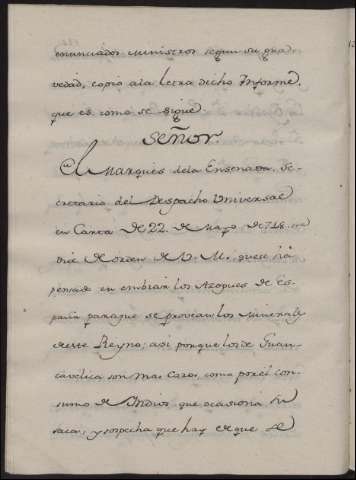 enunciados Ministros segun su gra-
vedad, copio ala letra dicho Informe,
que es como se sigue
Señor.
El Marqués dela Ensenada, Se-
cretario del Despacho Universal
en Carta de 22 de Mayo de 748
dice de orden de V. M. que se ha
pensado en embiar los Azogues de Es-
paña para que se provean los Minerales
de este Reyno; asi porque los de Guan-
cavelica son mas caros, como por el con-
sumo de Indios que ocasiona su
saca; y sospecha que hay en que se